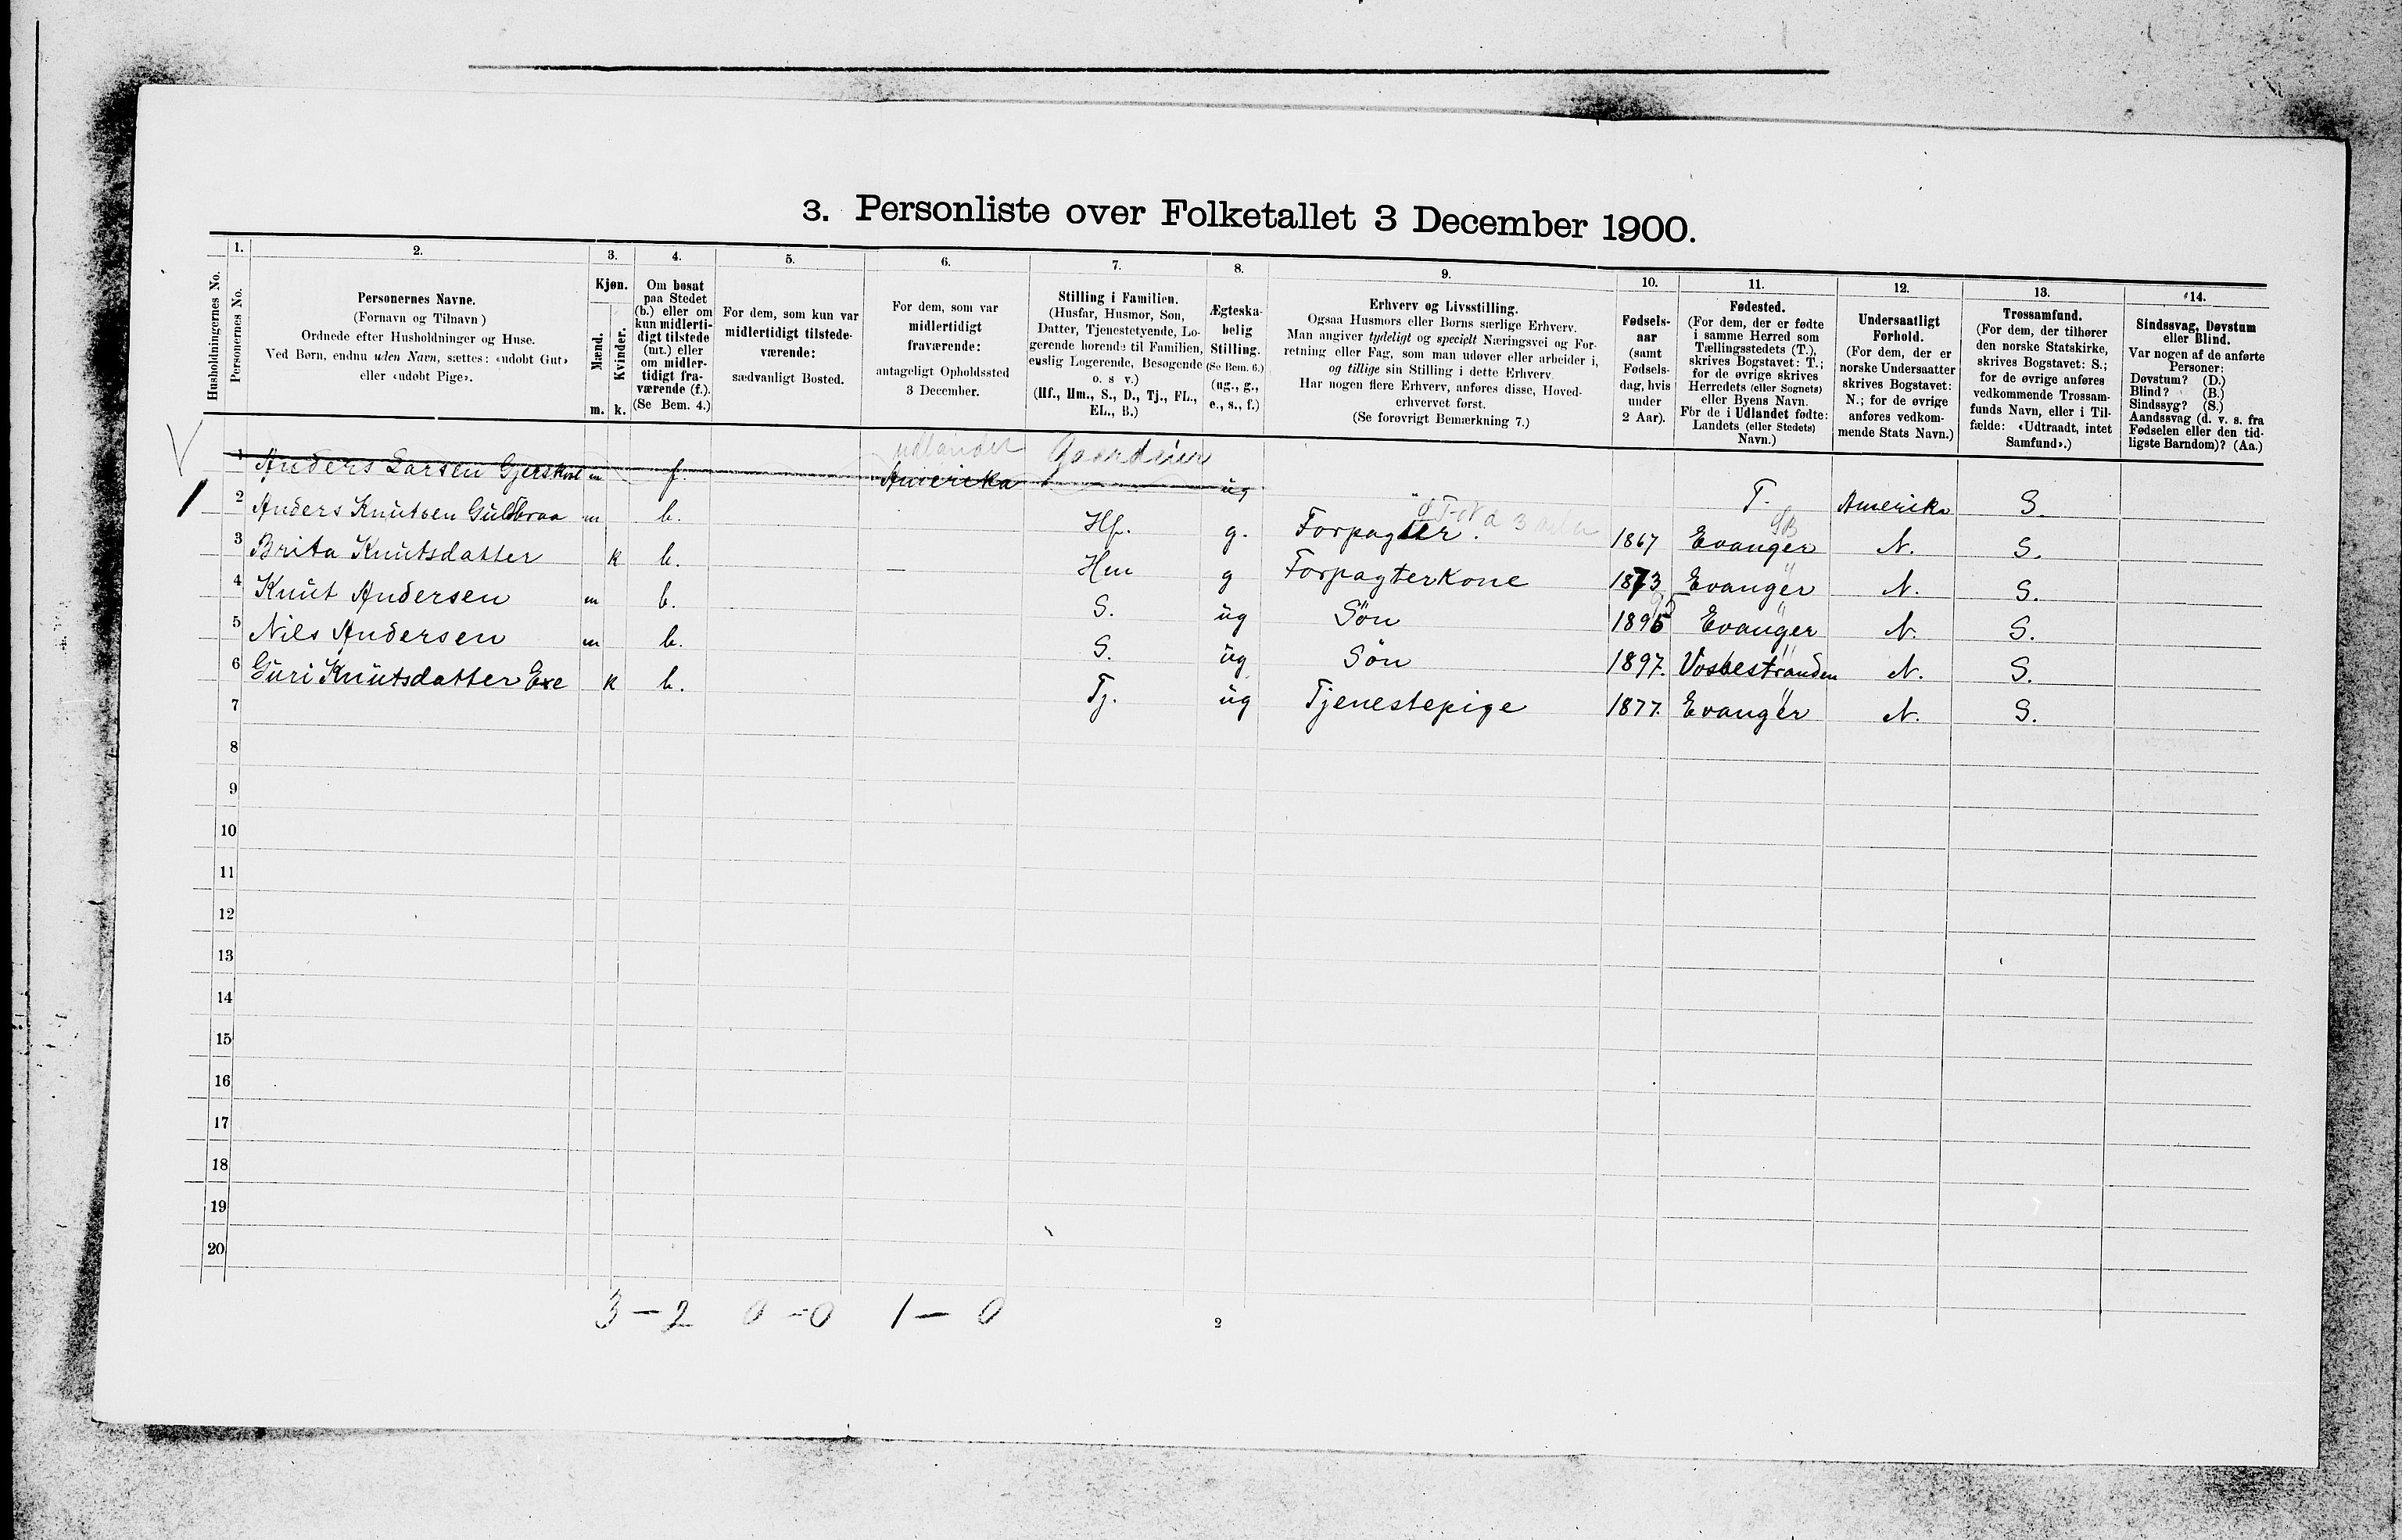 3. Personliste over Folketallet 3 December 1900.
1. 2. 3. 4. 5. 6. 7. 8. 9. 10. 11. 12. 13. 14.
Husholdningernes No.
Personernes No.
Personernes Navne.
(Fornavn og Tilnavn)
Ordnede efter Husholdninger og Huse.
Ved Børn, endnu uden Navn, sættes: «udøbt Gut»
eller «udøbt Pige».
Kjøn.
Mænd.
Kvinder.
m. k.
Om bosat
paa Stedet
(b.) eller om
kun midlerti-
digt tilstede
(mt.) eller
om midler-
tidigt fra-
værende (f.).
(Se Bem. 4.)
For dem, som kun var
midlertidigt tilstede-
værende:
sædvanligt Bosted.
For dem, som var
midlertidigt
fraværende:
antageligt Opholdssted
3 December.
Stilling i Familien.
(Husfar, Husmor, Søn,
Datter, Tjenestetyende, Lo-
gerende hørende til Familien,
enslig Logerende, Besøgende
o. s v.)
(Hf., Hm., S., D., Tj., FL.,
EL., B.)
Ægteska-
belig
Stilling.
(Se Bem. 6.)
(ug., g.,
e., s., f.)
Erhverv og Livsstilling.
Ogsaa Husmors eller Børns særlige Erhverv.
Man angiver tydeligt og specielt Næringsvei og For-
retning eller Fag, som man udøver eller arbeider i,
og tillige sin Stilling i dette Erhverv.
Har nogen flere Erhverv, anføres disse, Hoved-
erhvervet først.
(Se forøvrigt Bemærkning 7.)
Fødsels-
aar
(samt
Fødsels-
dag, hvis
under
2 Aar).
Fødested.
(For dem, der er fødte
i samme Herred som
Tællingsstedets (T.),
skrives Bogstavet: T.;
for de øvrige skrives
Herredets (eller Sognets)
eller Byens Navn.
For de i Udlandet fødte:
Landets (eller Stedets)
Navn.)
Undersaatligt
Forhold.
(For dem, der er
norske Undersaatter
skrives Bogstavet:
N.; for de øvrige
anføres vedkom-
mende Stats Navn.)
Trossamfund.
(For dem, der tilhører
den norske Statskirke,
skrives Bogstavet: S.;
for de øvrige anføres
vedkommende Trossam-
funds Navn, eller i Til-
fælde: «Udtraadt, intet
Samfund».)
Sindssvag, Døvstum
eller Blind.
Var nogen af de anførte
Personer:
Døvstum? (D.)
Blind? (B.)
Sindssyg? (S.)
Aandssvag (d. v. s. fra
Fødselen eller den tid-
ligste Barndom)? (Aa.)
udlandet Gaardeier
1 Anders Larsen m f. Amerika ug T. Amerika S.
2 Anders Knutsen Guldbraa m b. Hf. g. Forpagter. 1867 Evanger N. S.
3 Brita Knutsdatter k b. — Hm g Forpagterkone 1873 Evanger N. S.
4 Knut Andersen m b. S. ug Sön 1895 Evanger N. S.
5 Nils Andersen m b. S. ug Sön 1897. Vossestranden N. S.
6 Guri Knutsdatter Exe k b. Tj. ug Tjenestepige 1877. Evanger N. S.
7
8
9
10
11
12
13
14
15
16
17
18
19
20
3 – 2 0 – 0 1 – 0
2